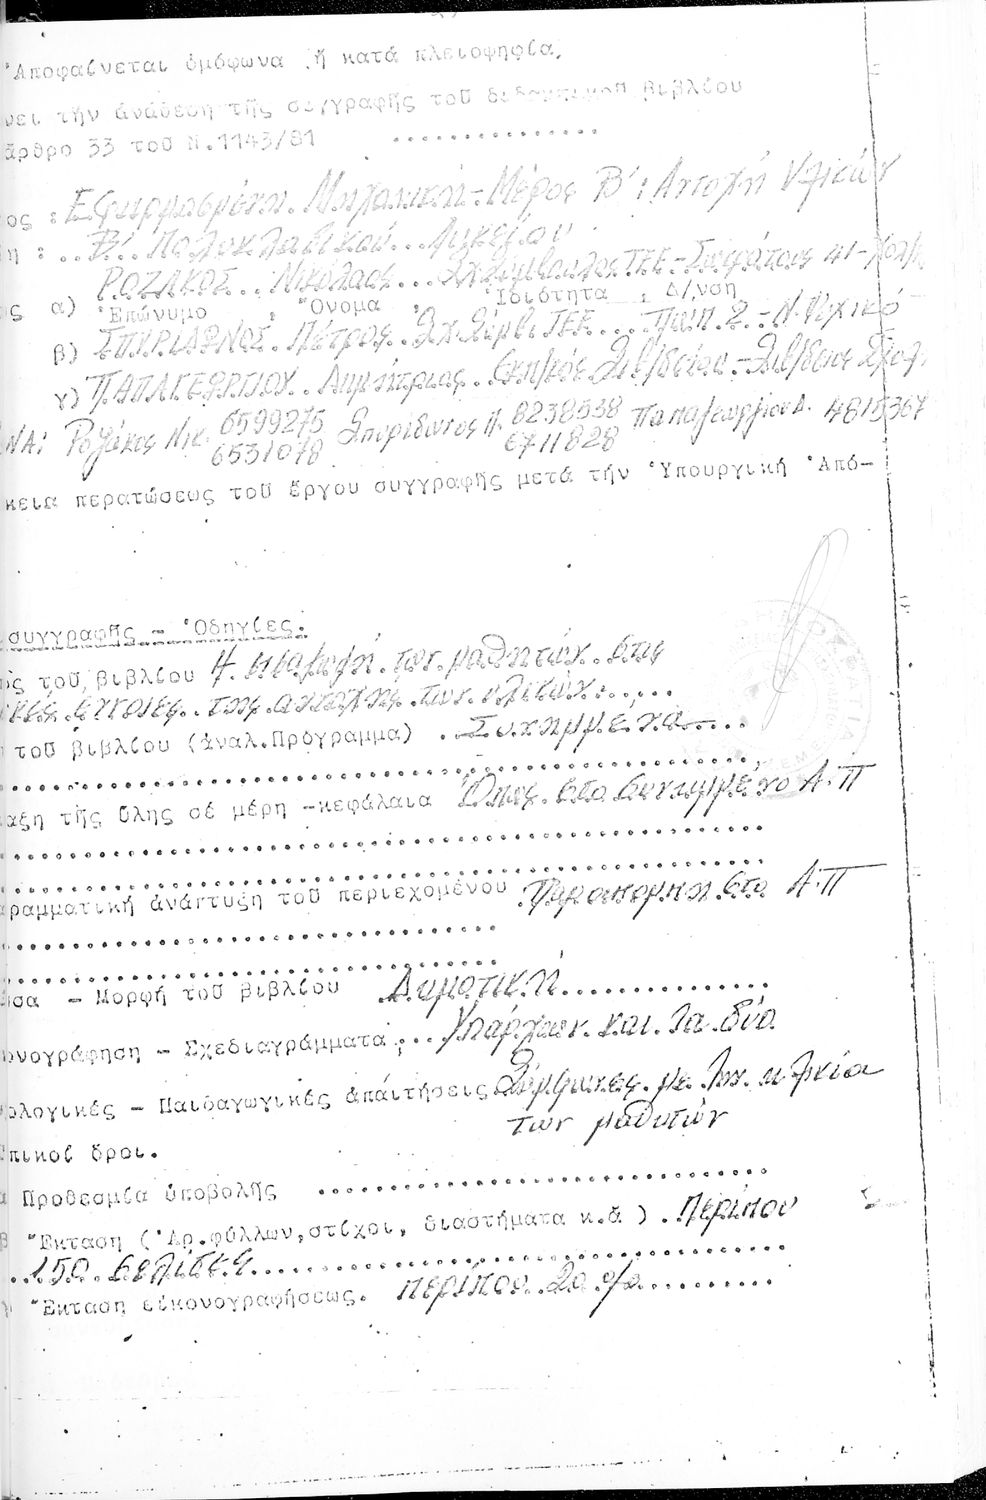 Ἀποφαίνεται ὁμόφωνα ἤ κατά πλειοψηφία,
νει τήν ἀνάθεση τῆς συγγραφῆς τοῦ διδακτικοῦ βιβλίου
ἄρθρο 33 τοῦ Ν.1143/81 ...............
ος : Εφαρμοσμένη Μηχανική - Μέρος Β' : Αντοχή Υλικών
η : .. Β' Πολυκλαδικού .. Λυκείου
ΡΟΖΑΚΟΣ .. Νικόλαος ... Σχ. Σύμβουλος ΤΕΕ - Σωκράτους 41 - Χολ
ος α) Ἐπώνυμο , Ὄνομα , Ἰδιότητα , Δ/νση
β) ΣΠΥΡΙΔΩΝΟΣ . Πέτρος .. Σχ. Σύμβ. ΤΕΕ ... 2 - Ν. Ψυχικό
γ) ΠΑΠΑΓΕΩΡΓΙΟΥ .. Δημήτριος .. Σιβιτ - Σιβιτ Σχολ
ΝΑ: Ροζάκος Νικ. 6599275 Σπυρίδωνος Π. 8238538 Παπαγεωργίου Δ. 4815367
6531078 6711828
κεια περατώσεως τοῦ ἔργου συγγραφῆς μετά τήν Ὑπουργική Ἀπό-
συγγραφῆς - Ὁδηγίες.
ός τοῦ βιβλίου Η εισαγωγή των μαθητών στις
κές έννοιες της αντοχής των υλικών......
τοῦ βιβλίου (ἀναλ.Πρόγραμμα) . Συνημμένα....
αξη τῆς ὕλης σέ μέρη -κεφάλαια Όπως στο συνημμένο Α.Π
ραμματική ἀνάπτυξη τοῦ περιεχομένου Παραπομπή στο Α.Π
σσα - Μορφή τοῦ βιβλίου Δημοτική..............
ονογράφηση - Σχεδιαγράμματα ... Υπάρχουν και τα δύο
ολογικές - Παιδαγωγικές ἀπαιτήσεις Σύμφωνες με την ηλικία
των μαθητών
πικοί ὅροι.
α Προθεσμία ὑποβολῆς ..............................
β Ἔκταση (Ἀρ.φύλλων,στίχοι, διαστήματα κ.ἄ ) . περίπου
..150 σελίδες..............................
γ Ἔκταση εἰκονογραφήσεως. περίπου 20 %..........